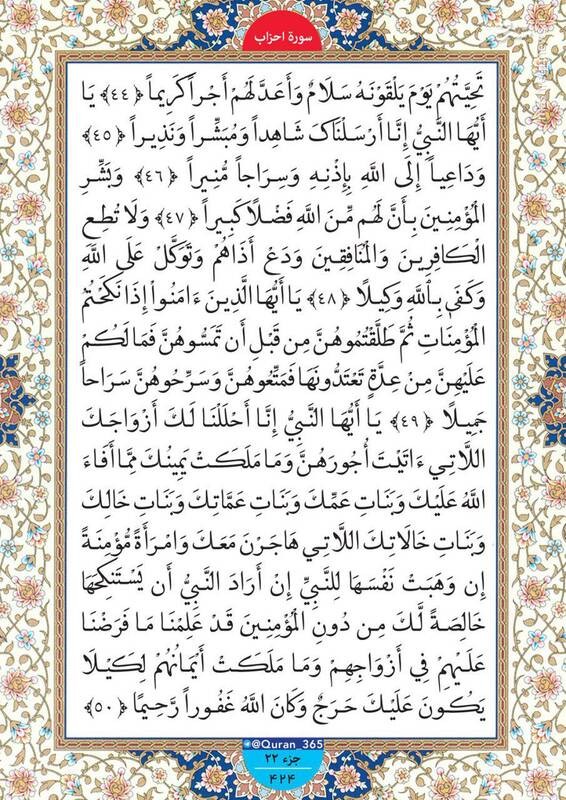 سورة احزاب
تَحِيَّتُهُمْ يَوْمَ يَلْقَوْنَهُ سَلَامٌ وَأَعَدَّ لَهُمْ أَجْراً كَرِيماً ﴿٤٤﴾ يَا
أَيُّهَا النَّبِيُّ إِنَّا أَرْسَلْنَاكَ شَاهِداً وَمُبَشِّراً وَنَذِيراً ﴿٤٥﴾
وَدَاعِياً إِلَى اللَّهِ بِإِذْنِهِ وَسِرَاجاً مُّنِيراً ﴿٤٦﴾ وَبَشِّرِ
الْمُؤْمِنِينَ بِأَنَّ لَهُم مِّنَ اللَّهِ فَضْلًا كَبِيراً ﴿٤٧﴾ وَلَا تُطِعِ
الْكَافِرِينَ وَالْمُنَافِقِينَ وَدَعْ أَذَاهُمْ وَتَوَكَّلْ عَلَى اللَّهِ
وَكَفَى بِاللَّهِ وَكِيلًا ﴿٤٨﴾ يَا أَيُّهَا الَّذِينَ ءَامَنُواْ إِذَا نَكَحْتُمُ
الْمُؤْمِنَاتِ ثُمَّ طَلَّقْتُمُوهُنَّ مِن قَبْلِ أَن تَمَسُّوهُنَّ فَمَا لَكُمْ
عَلَيْهِنَّ مِنْ عِدَّةٍ تَعْتَدُّونَهَا فَمَتِّعُوهُنَّ وَسَرِّحُوهُنَّ سَرَاحاً
جَمِيلًا ﴿٤٩﴾ يَا أَيُّهَا النَّبِيُّ إِنَّا أَحْلَلْنَا لَكَ أَزْوَاجَكَ
اللَّاتِي ءَاتَيْتَ أُجُورَهُنَّ وَمَا مَلَكَتْ يَمِينُكَ مِمَّا أَفَاءَ
اللَّهُ عَلَيْكَ وَبَنَاتِ عَمِّكَ وَبَنَاتِ عَمَّاتِكَ وَبَنَاتِ خَالِكَ
وَبَنَاتِ خَالَاتِكَ اللَّاتِي هَاجَرْنَ مَعَكَ وَامْرَأَةً مُّؤْمِنَةً
إِن وَهَبَتْ نَفْسَهَا لِلنَّبِيِّ إِنْ أَرَادَ النَّبِيُّ أَن يَسْتَنكِحَهَا
خَالِصَةً لَّكَ مِن دُونِ الْمُؤْمِنِينَ قَدْ عَلِمْنَا مَا فَرَضْنَا
عَلَيْهِمْ فِي أَزْوَاجِهِمْ وَمَا مَلَكَتْ أَيْمَانُهُمْ لِكَيْلَا
يَكُونَ عَلَيْكَ حَرَجٌ وَكَانَ اللَّهُ غَفُوراً رَّحِيمًا ﴿٥٠﴾
@Quran_365
جزء ٢٢
۴۲۴